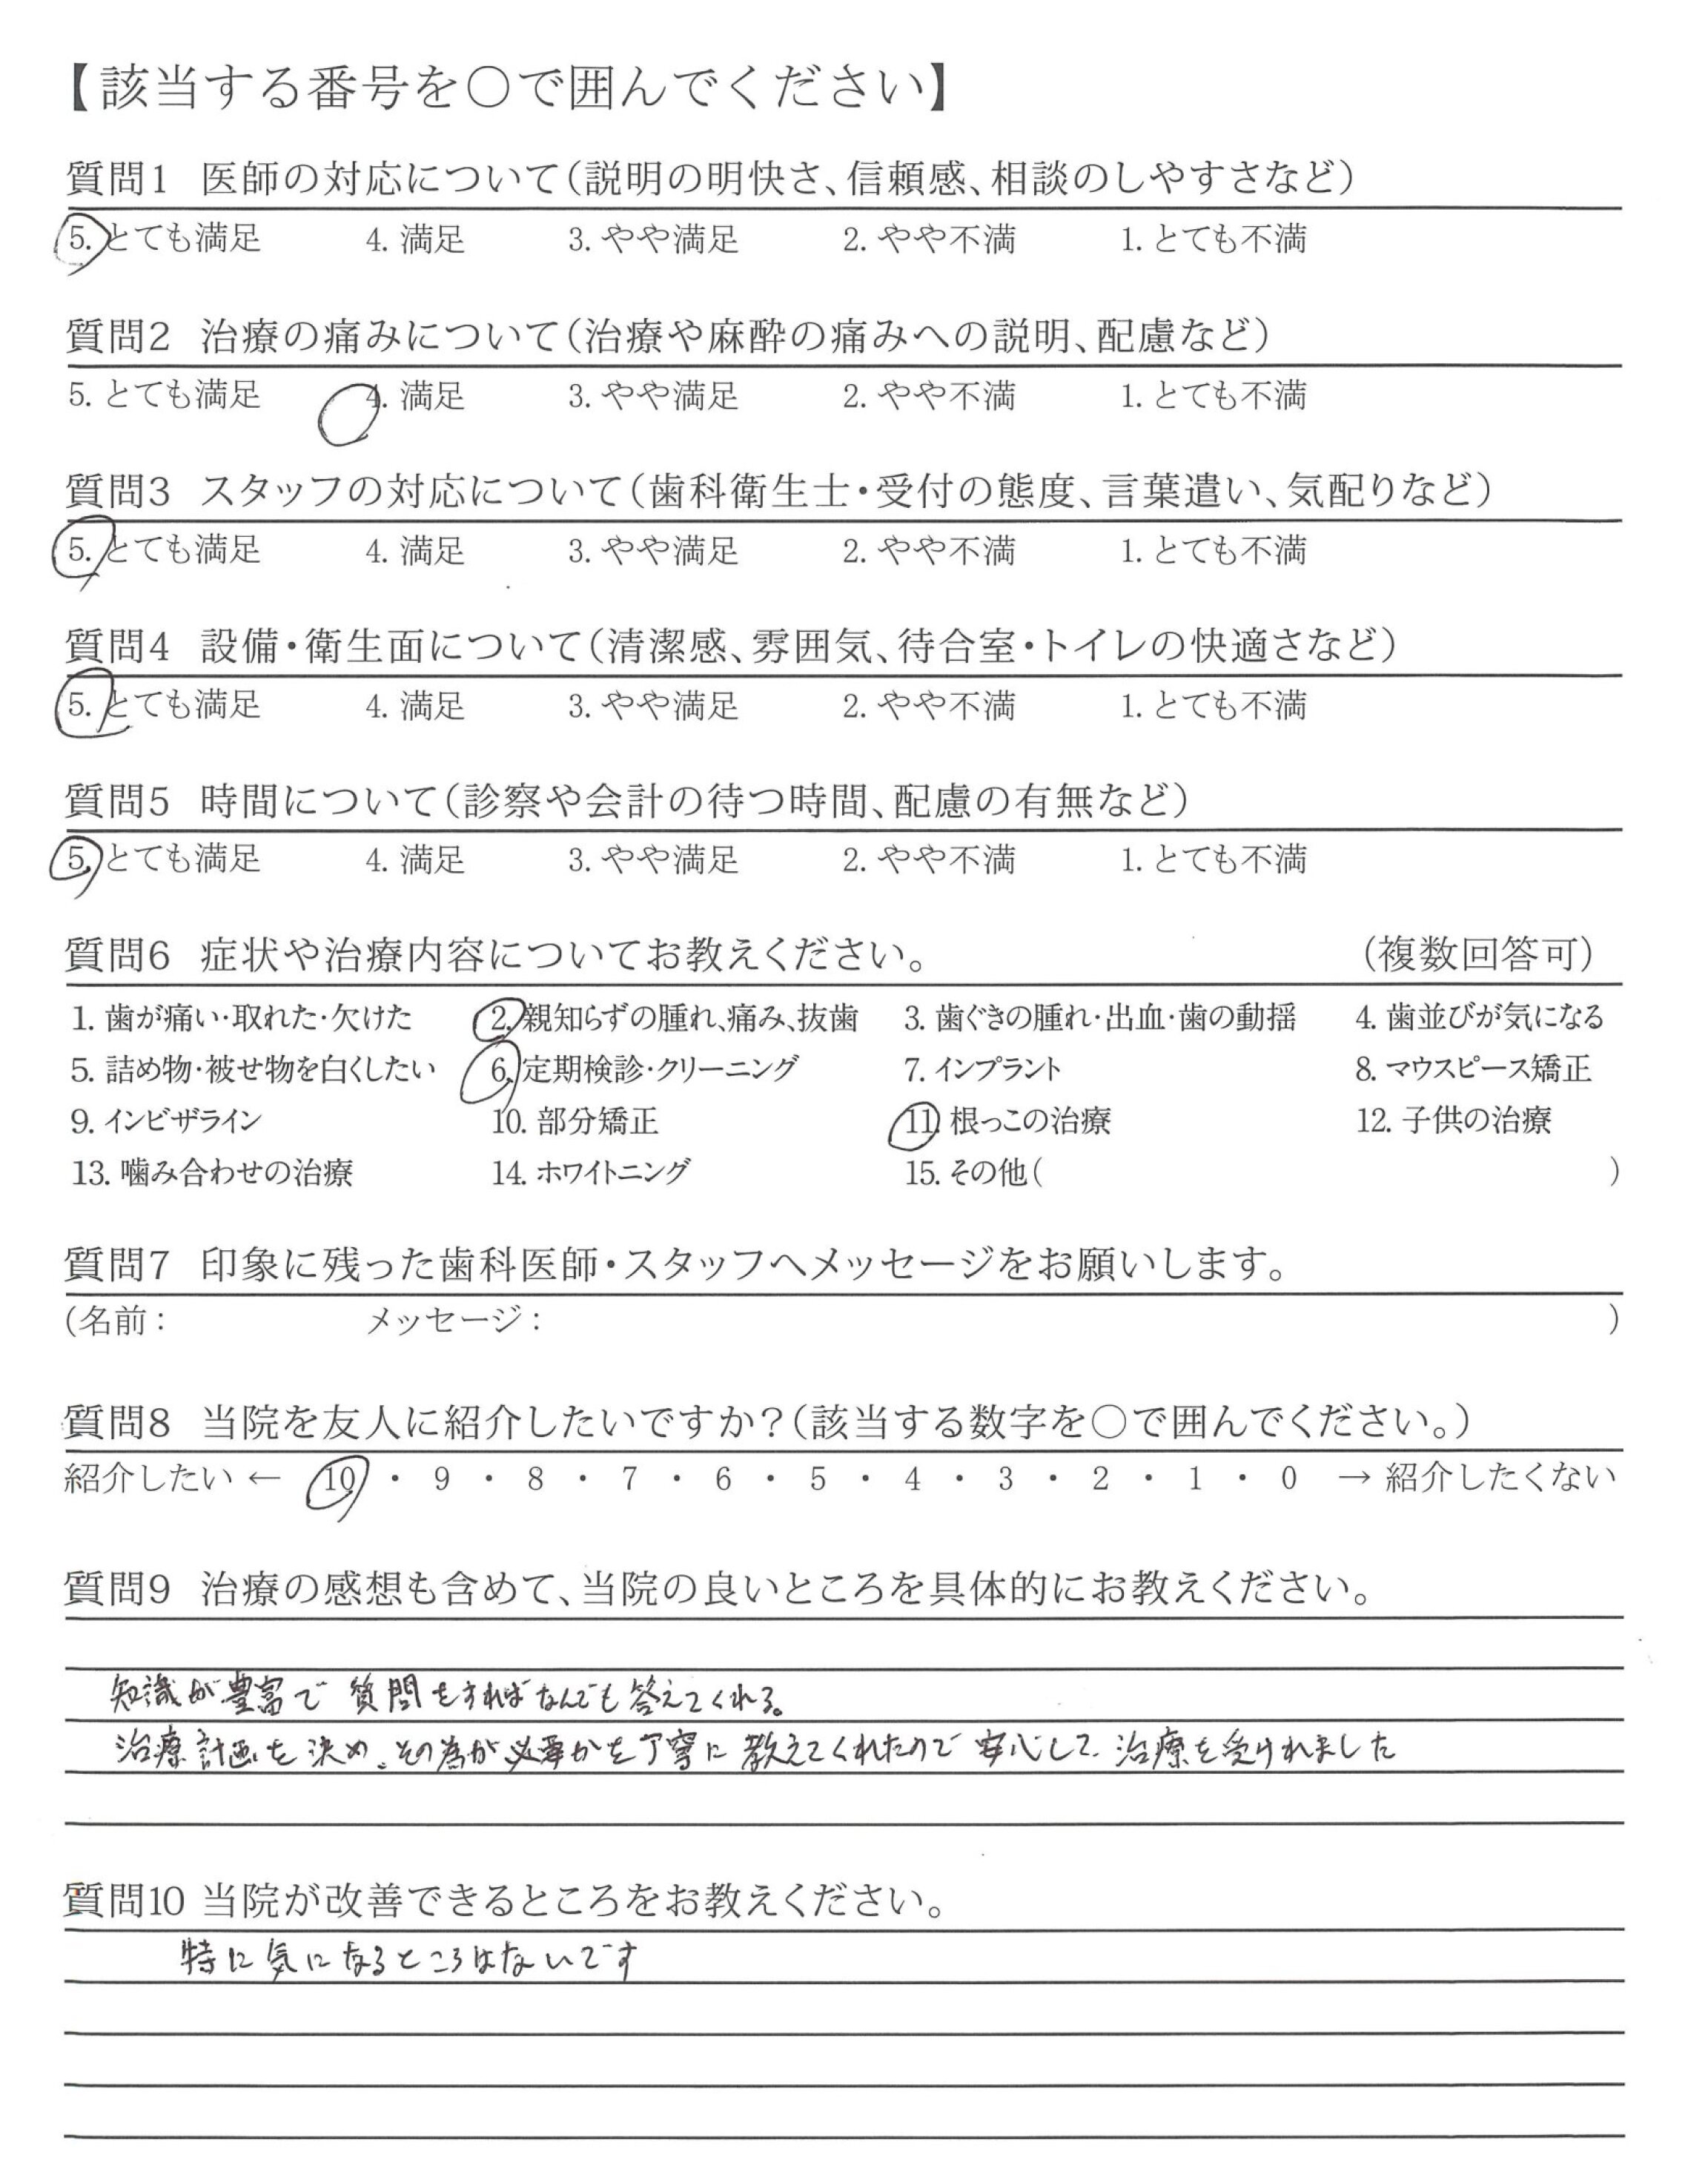 【該当する番号を○で囲んでください】
質問1 医師の対応について(説明の明快さ、信頼感、相談のしやすさなど)
5. とても満足 4. 満足 3. やや満足 2. やや不満 1. とても不満
質問2 治療の痛みについて(治療や麻酔の痛みへの説明、配慮など)
5. とても満足 4. 満足 3. やや満足 2. やや不満 1. とても不満
質問3 スタッフの対応について(歯科衛生士・受付の態度、言葉遣い、気配りなど)
5. とても満足 4. 満足 3. やや満足 2. やや不満 1. とても不満
質問4 設備・衛生面について(清潔感、雰囲気、待合室・トイレの快適さなど)
5. とても満足 4. 満足 3. やや満足 2. やや不満 1. とても不満
質問5 時間について(診察や会計の待つ時間、配慮の有無など)
5. とても満足 4. 満足 3. やや満足 2. やや不満 1. とても不満
質問6 症状や治療内容についてお教えください。 (複数回答可)
1. 歯が痛い・取れた・欠けた 2. 親知らずの腫れ、痛み、抜歯 3. 歯ぐきの腫れ・出血・歯の動揺 4. 歯並びが気になる
5. 詰め物・被せ物を白くしたい 6. 定期検診・クリーニング 7. インプラント 8. マウスピース矯正
9. インビザライン 10. 部分矯正 11. 根っこの治療 12. 子供の治療
13. 噛み合わせの治療 14. ホワイトニング 15. その他( )
質問7 印象に残った歯科医師・スタッフへメッセージをお願いします。
(名前: メッセージ: )
質問8 当院を友人に紹介したいですか?(該当する数字を○で囲んでください。)
紹介したい ← 10 ・ 9 ・ 8 ・ 7 ・ 6 ・ 5 ・ 4 ・ 3 ・ 2 ・ 1 ・ 0 → 紹介したくない
質問9 治療の感想も含めて、当院の良いところを具体的にお教えください。
知識が豊富で 質問をすればなんでも答えてくれる。
治療計画を決め、その為が必要かを丁寧に教えてくれたので安心して治療を受けれました
質問10 当院が改善できるところをお教えください。
特に気になるところはないです